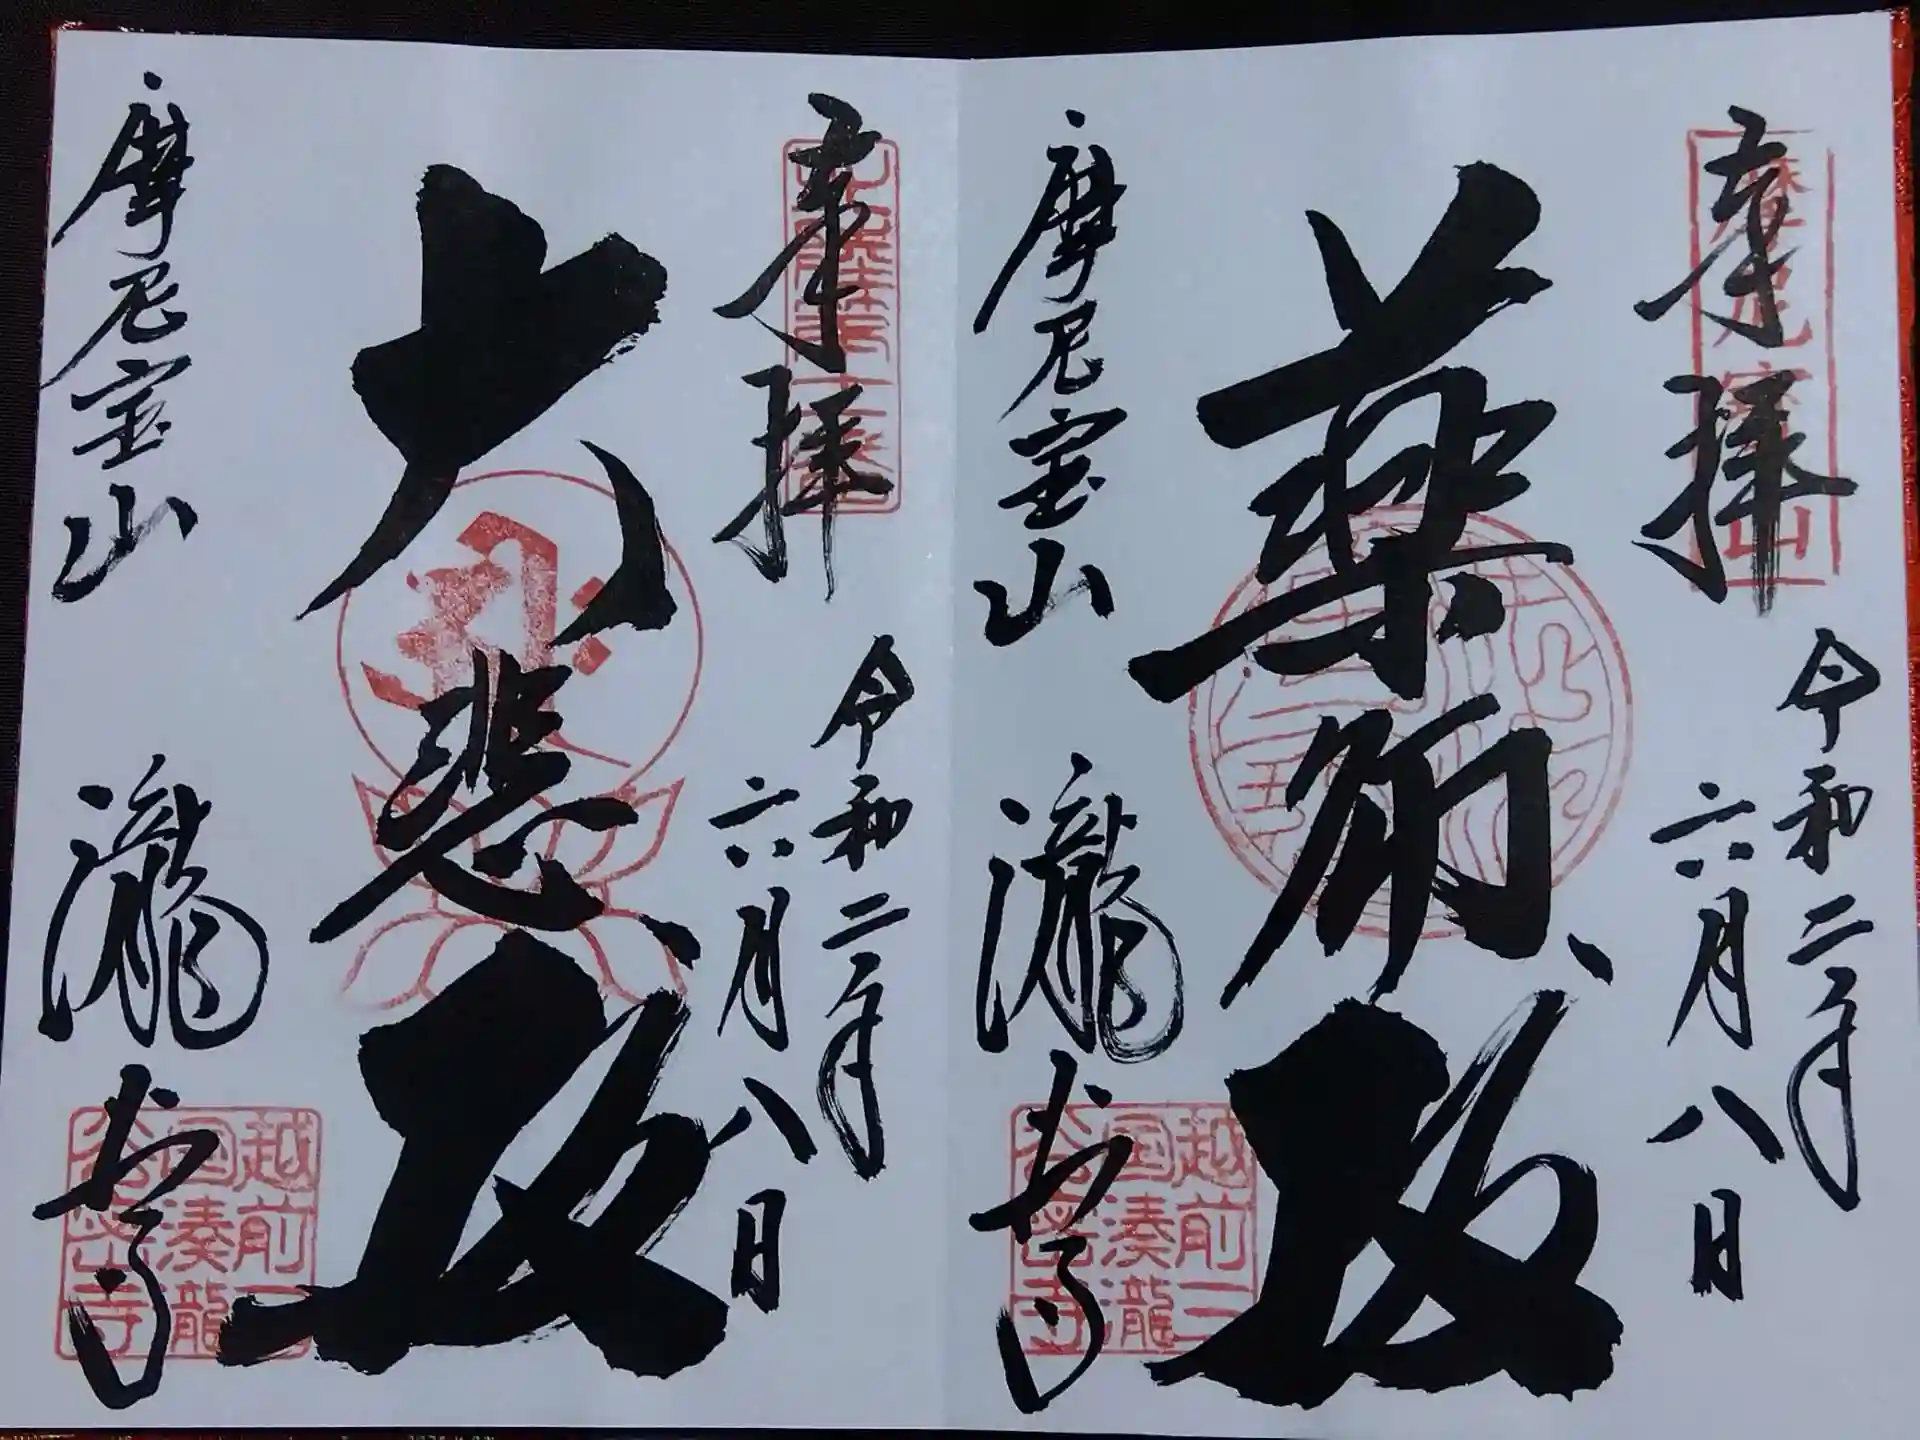 奉拝
摩尼寳山
令和二年
六月八日
薬師殿
摩尼宝山
瀧谷寺
越前三
国湊瀧
谷密寺
奉拝
令和二年
六月八日
大悲殿
摩尼宝山
瀧谷寺
越前三
国湊瀧
谷密寺